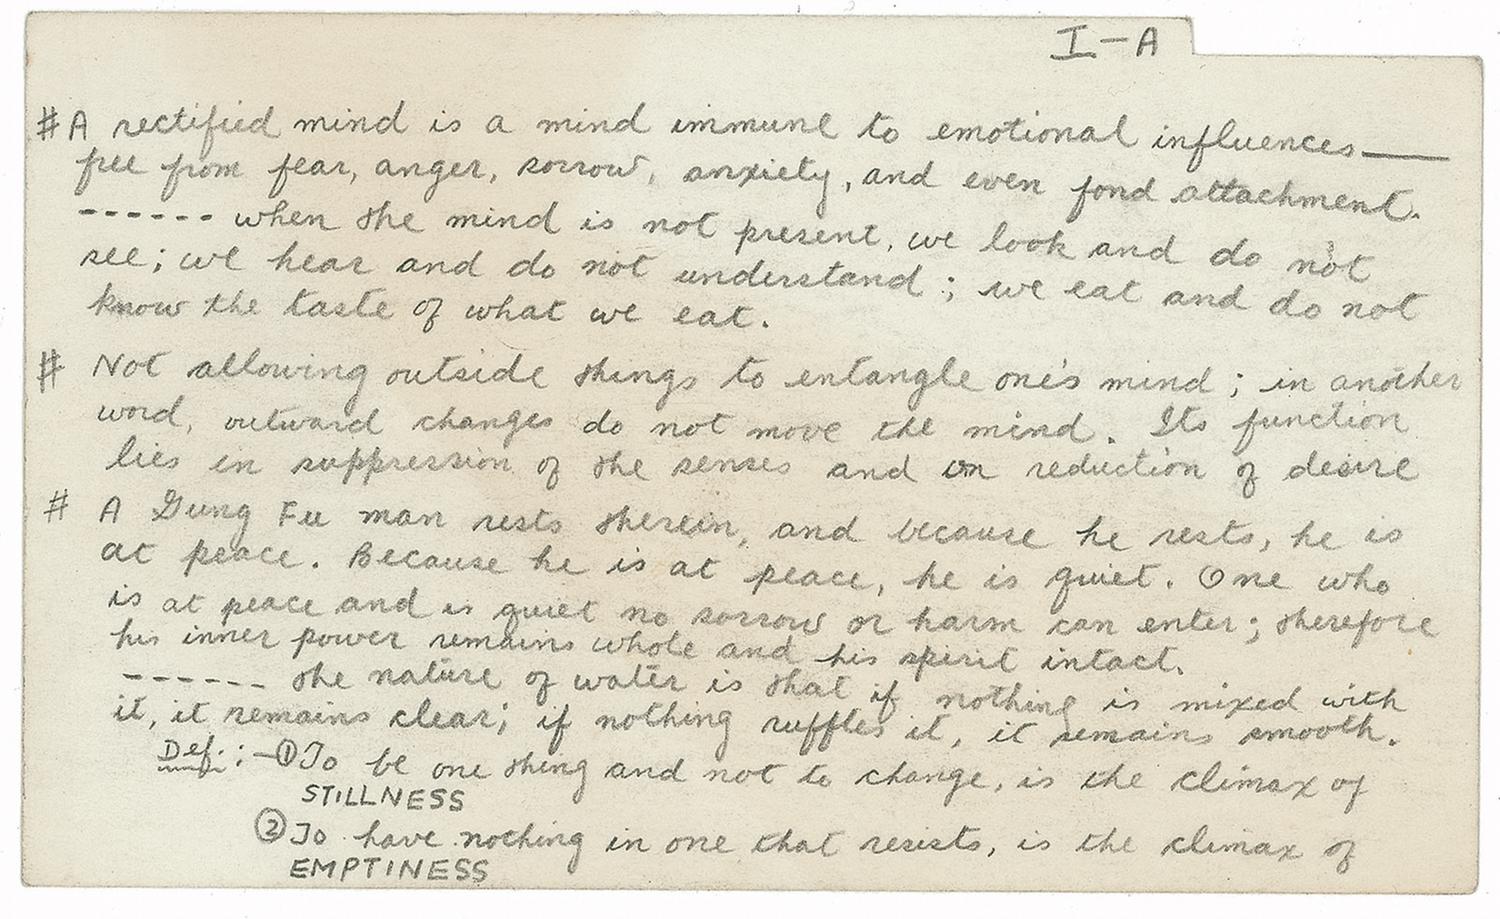 I-A
# A rectified mind is a mind immune to emotional influences——
free from fear, anger, sorrow, anxiety, and even fond attachment.
------ when the mind is not present, we look and do not
see; we hear and do not understand; we eat and do not
know the taste of what we eat.
# Not allowing outside things to entangle one's mind; in another
word, outward changes do not move the mind. Its function
lies in suppression of the senses and in reduction of desire
# A Gung Fu man rests therein, and because he rests, he is
at peace. Because he is at peace, he is quiet. One who
is at peace and is quiet no sorrow or harm can enter; therefore
his inner power remains whole and his spirit intact.
------ the nature of water is that if nothing is mixed with
it, it remains clear; if nothing ruffles it, it remains smooth.
Def.: —① To be one thing and not to change, is the climax of
STILLNESS
② To have nothing in one that resists, is the climax of
EMPTINESS